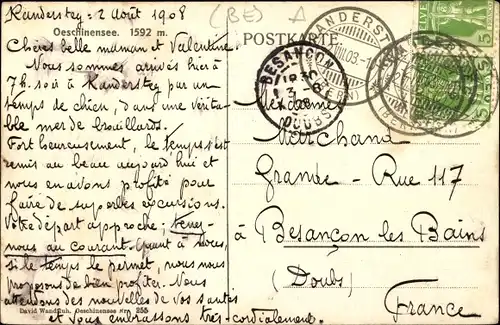 Kandersteg - 2 Août 1908
(BE)
A
Oeschinensee. 1592 m.
POSTKARTE
Chères belle maman et Valentine
Nous sommes arrivés hier à
7h. soir à Kandersteg par un
temps de chien, dans une vérita-
ble mer de brouillards.
Fort heureusement, le temps s'est
remis au beau aujourd'hui et
nous en avons profité pour
faire de superbes excursions.
Votre départ approche; tenez-
nous au courant. Quant à nous,
si le temps le permet, nous nous
proposons de bien profiter. Nous
attendons des nouvelles de vos santés
et vous embrassons très-cordialement.
David Wandfluh, Oeschinensee 255
BESANÇON
DOUBS
KANDERSTEG
HELVETIA
5
5
Marchand
Grande-Rue 117
à Besançon les Bains
(Doubs)
France